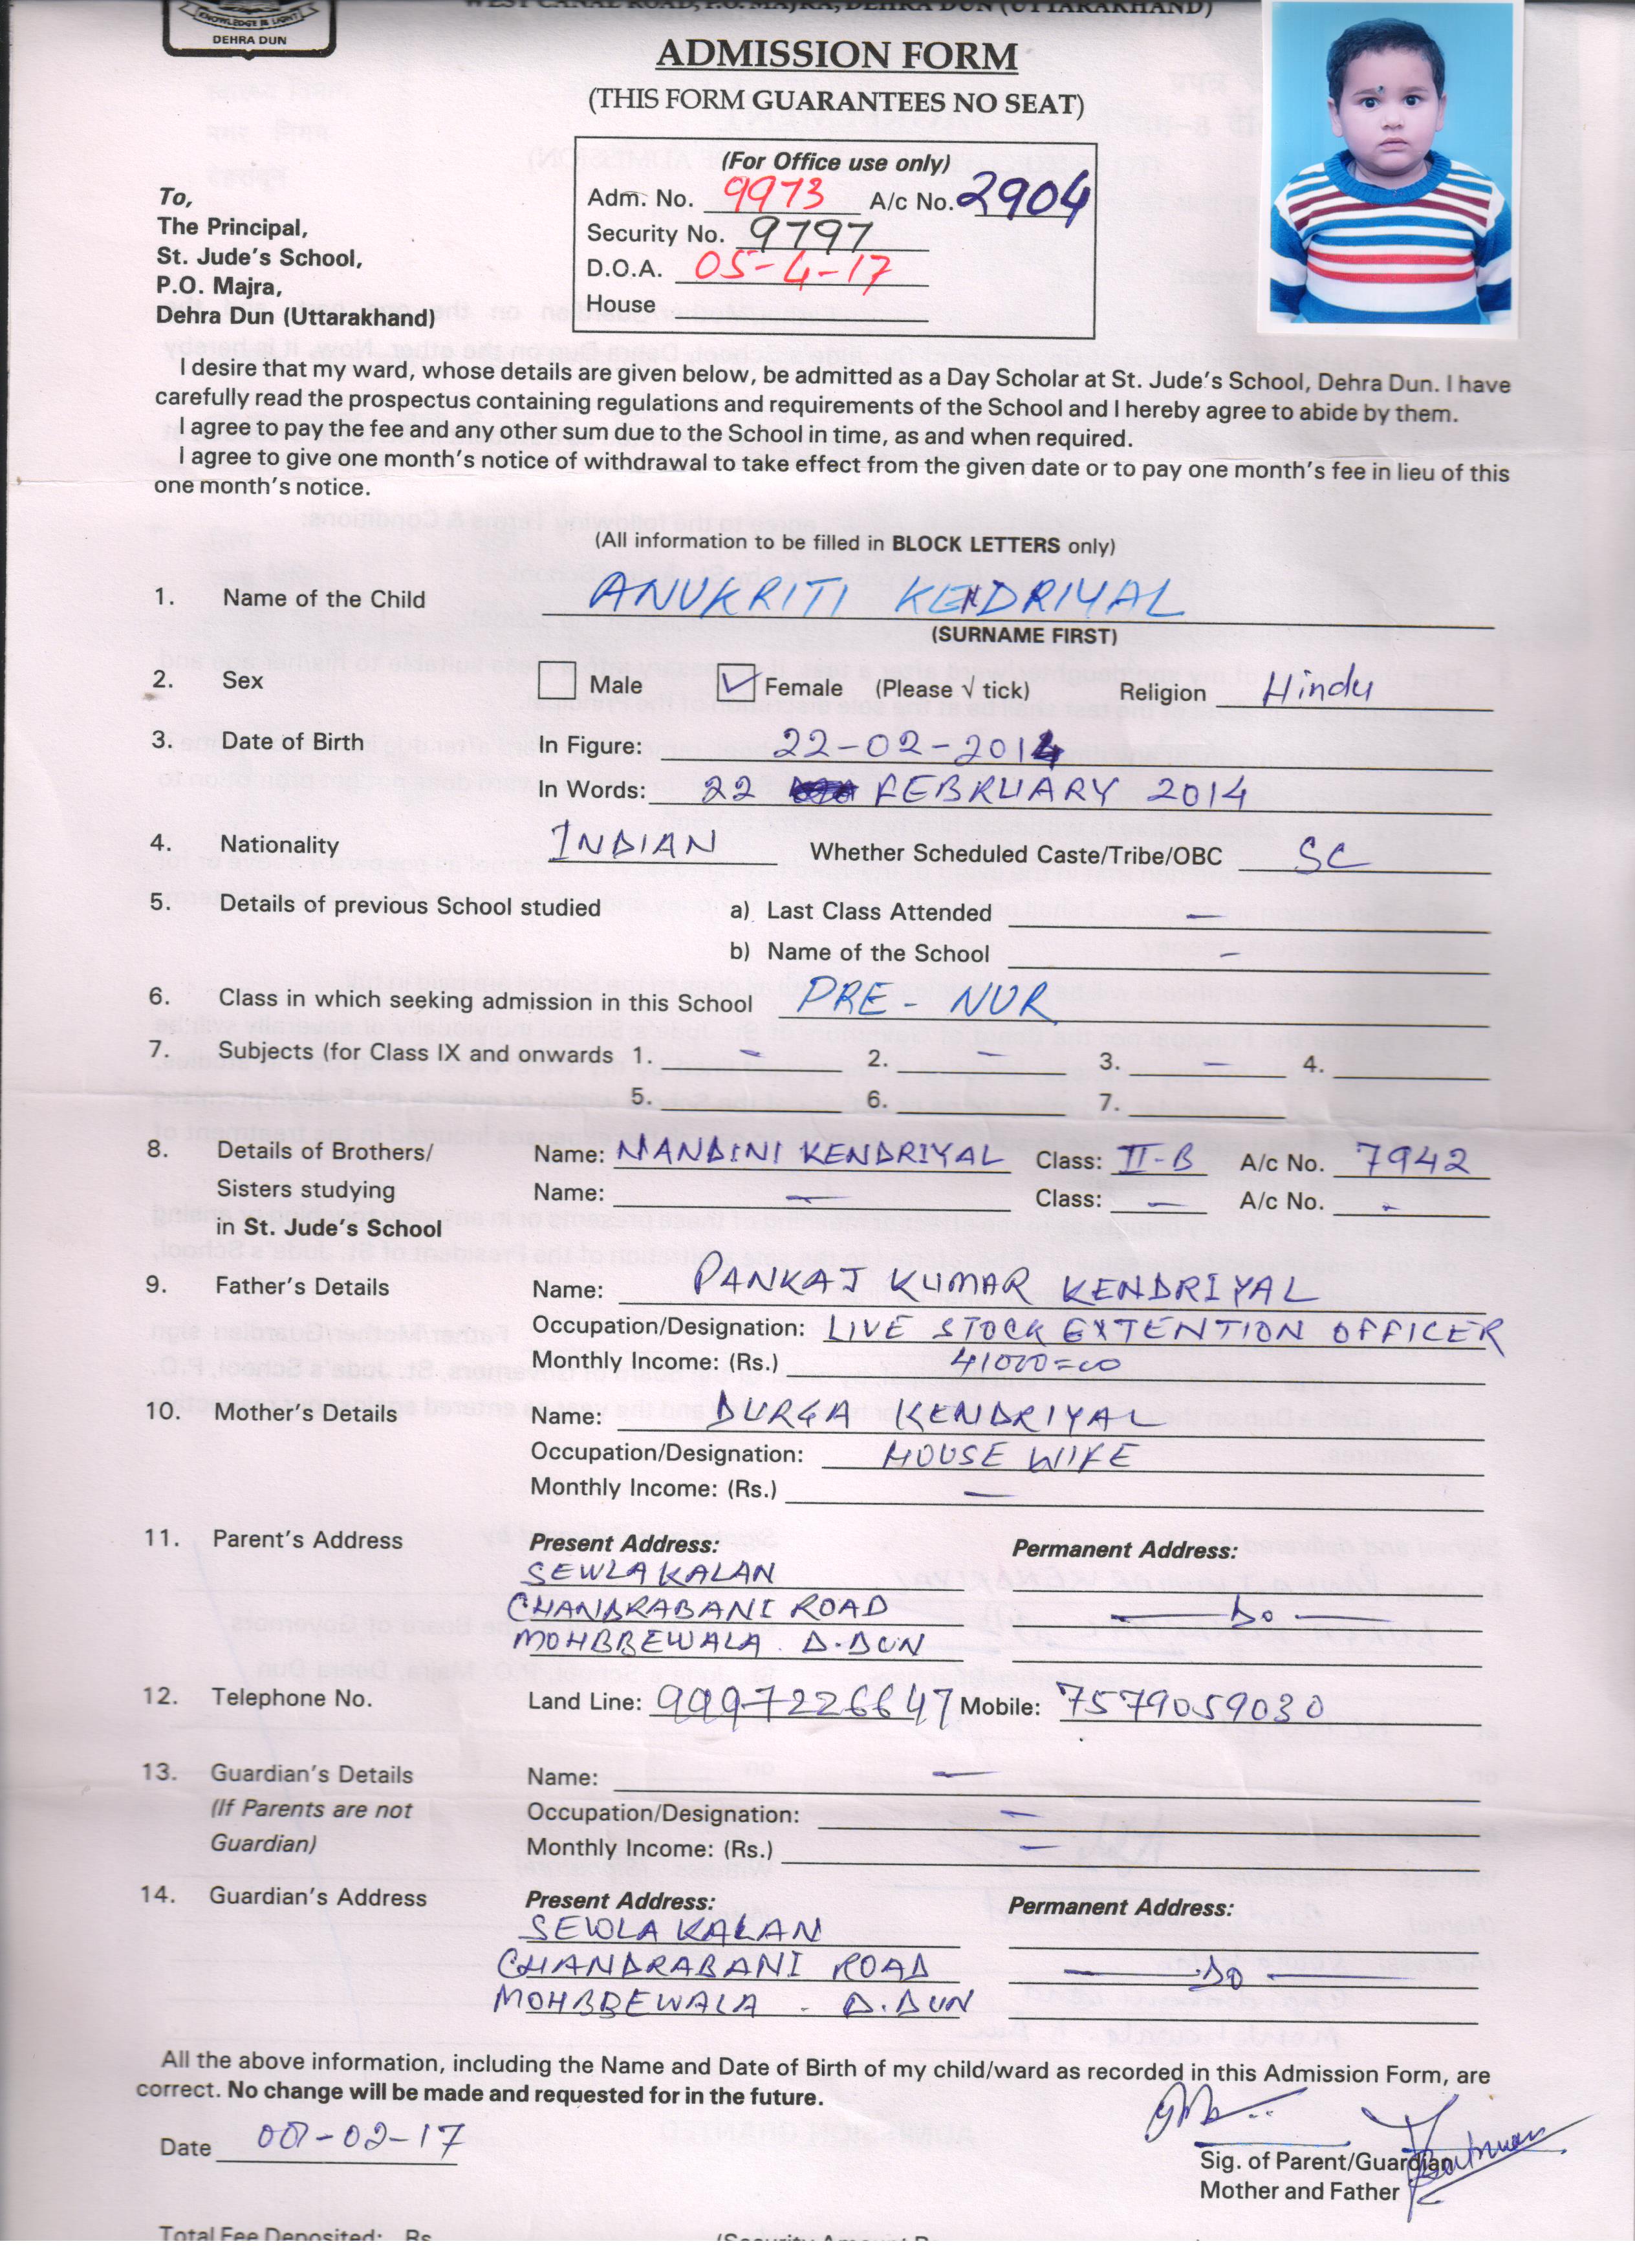 KNOWLEDGE IS LIGHT
DEHRA DUN
WEST CANAL ROAD, P.O. MAJRA, DEHRA DUN (UTTARAKHAND)
ADMISSION FORM
(THIS FORM GUARANTEES NO SEAT)
(For Office use only)
Adm. No. 9973 A/c No. 2904
Security No. 9797
D.O.A. 05-4-17
House
To,
The Principal,
St. Jude's School,
P.O. Majra,
Dehra Dun (Uttarakhand)
I desire that my ward, whose details are given below, be admitted as a Day Scholar at St. Jude's School, Dehra Dun. I have
carefully read the prospectus containing regulations and requirements of the School and I hereby agree to abide by them.
I agree to pay the fee and any other sum due to the School in time, as and when required.
I agree to give one month's notice of withdrawal to take effect from the given date or to pay one month's fee in lieu of this
one month's notice.
(All information to be filled in BLOCK LETTERS only)
1. Name of the Child ANUKRITI KENDRIYAL
(SURNAME FIRST)
2. Sex Male Female (Please √ tick) Religion Hindu
3. Date of Birth In Figure: 22-02-2014
In Words: 22 FEBRUARY 2014
4. Nationality INDIAN Whether Scheduled Caste/Tribe/OBC SC
5. Details of previous School studied a) Last Class Attended —
b) Name of the School -
6. Class in which seeking admission in this School PRE - NUR
7. Subjects (for Class IX and onwards 1. - 2. - 3. - 4.
5. 6. 7.
8. Details of Brothers/ Name: NANDINI KENDRIYAL Class: II-B A/c No. 7942
Sisters studying Name: — Class: — A/c No. -
in St. Jude's School
9. Father's Details Name: PANKAJ KUMAR KENDRIYAL
Occupation/Designation: LIVE STOCK EXTENTION OFFICER
Monthly Income: (Rs.) 41000=00
10. Mother's Details Name: DURGA KENDRIYAL
Occupation/Designation: HOUSE WIFE
Monthly Income: (Rs.) —
11. Parent's Address Present Address: Permanent Address:
SEWLA KALAN
CHANDRABANI ROAD — Do —
MOHBBEWALA. D.DUN
12. Telephone No. Land Line: 9997226647 Mobile: 7579059030
13. Guardian's Details Name: —
(If Parents are not Occupation/Designation: —
Guardian) Monthly Income: (Rs.) —
14. Guardian's Address Present Address: Permanent Address:
SEWLA KALAN
CHANDRABANI ROAD — Do —
MOHBBEWALA - D.DUN
All the above information, including the Name and Date of Birth of my child/ward as recorded in this Admission Form, are
correct. No change will be made and requested for in the future.
Date -02-17
Sig. of Parent/Guardian
Mother and Father
Total Fee Deposited: Rs.
(Security Amount